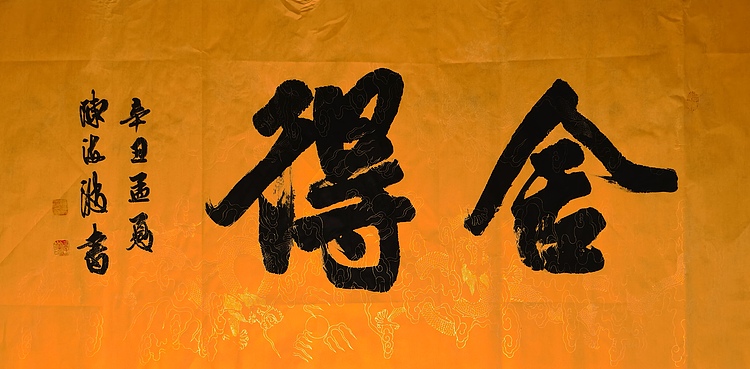 舍得
辛丑孟夏
陳海波書